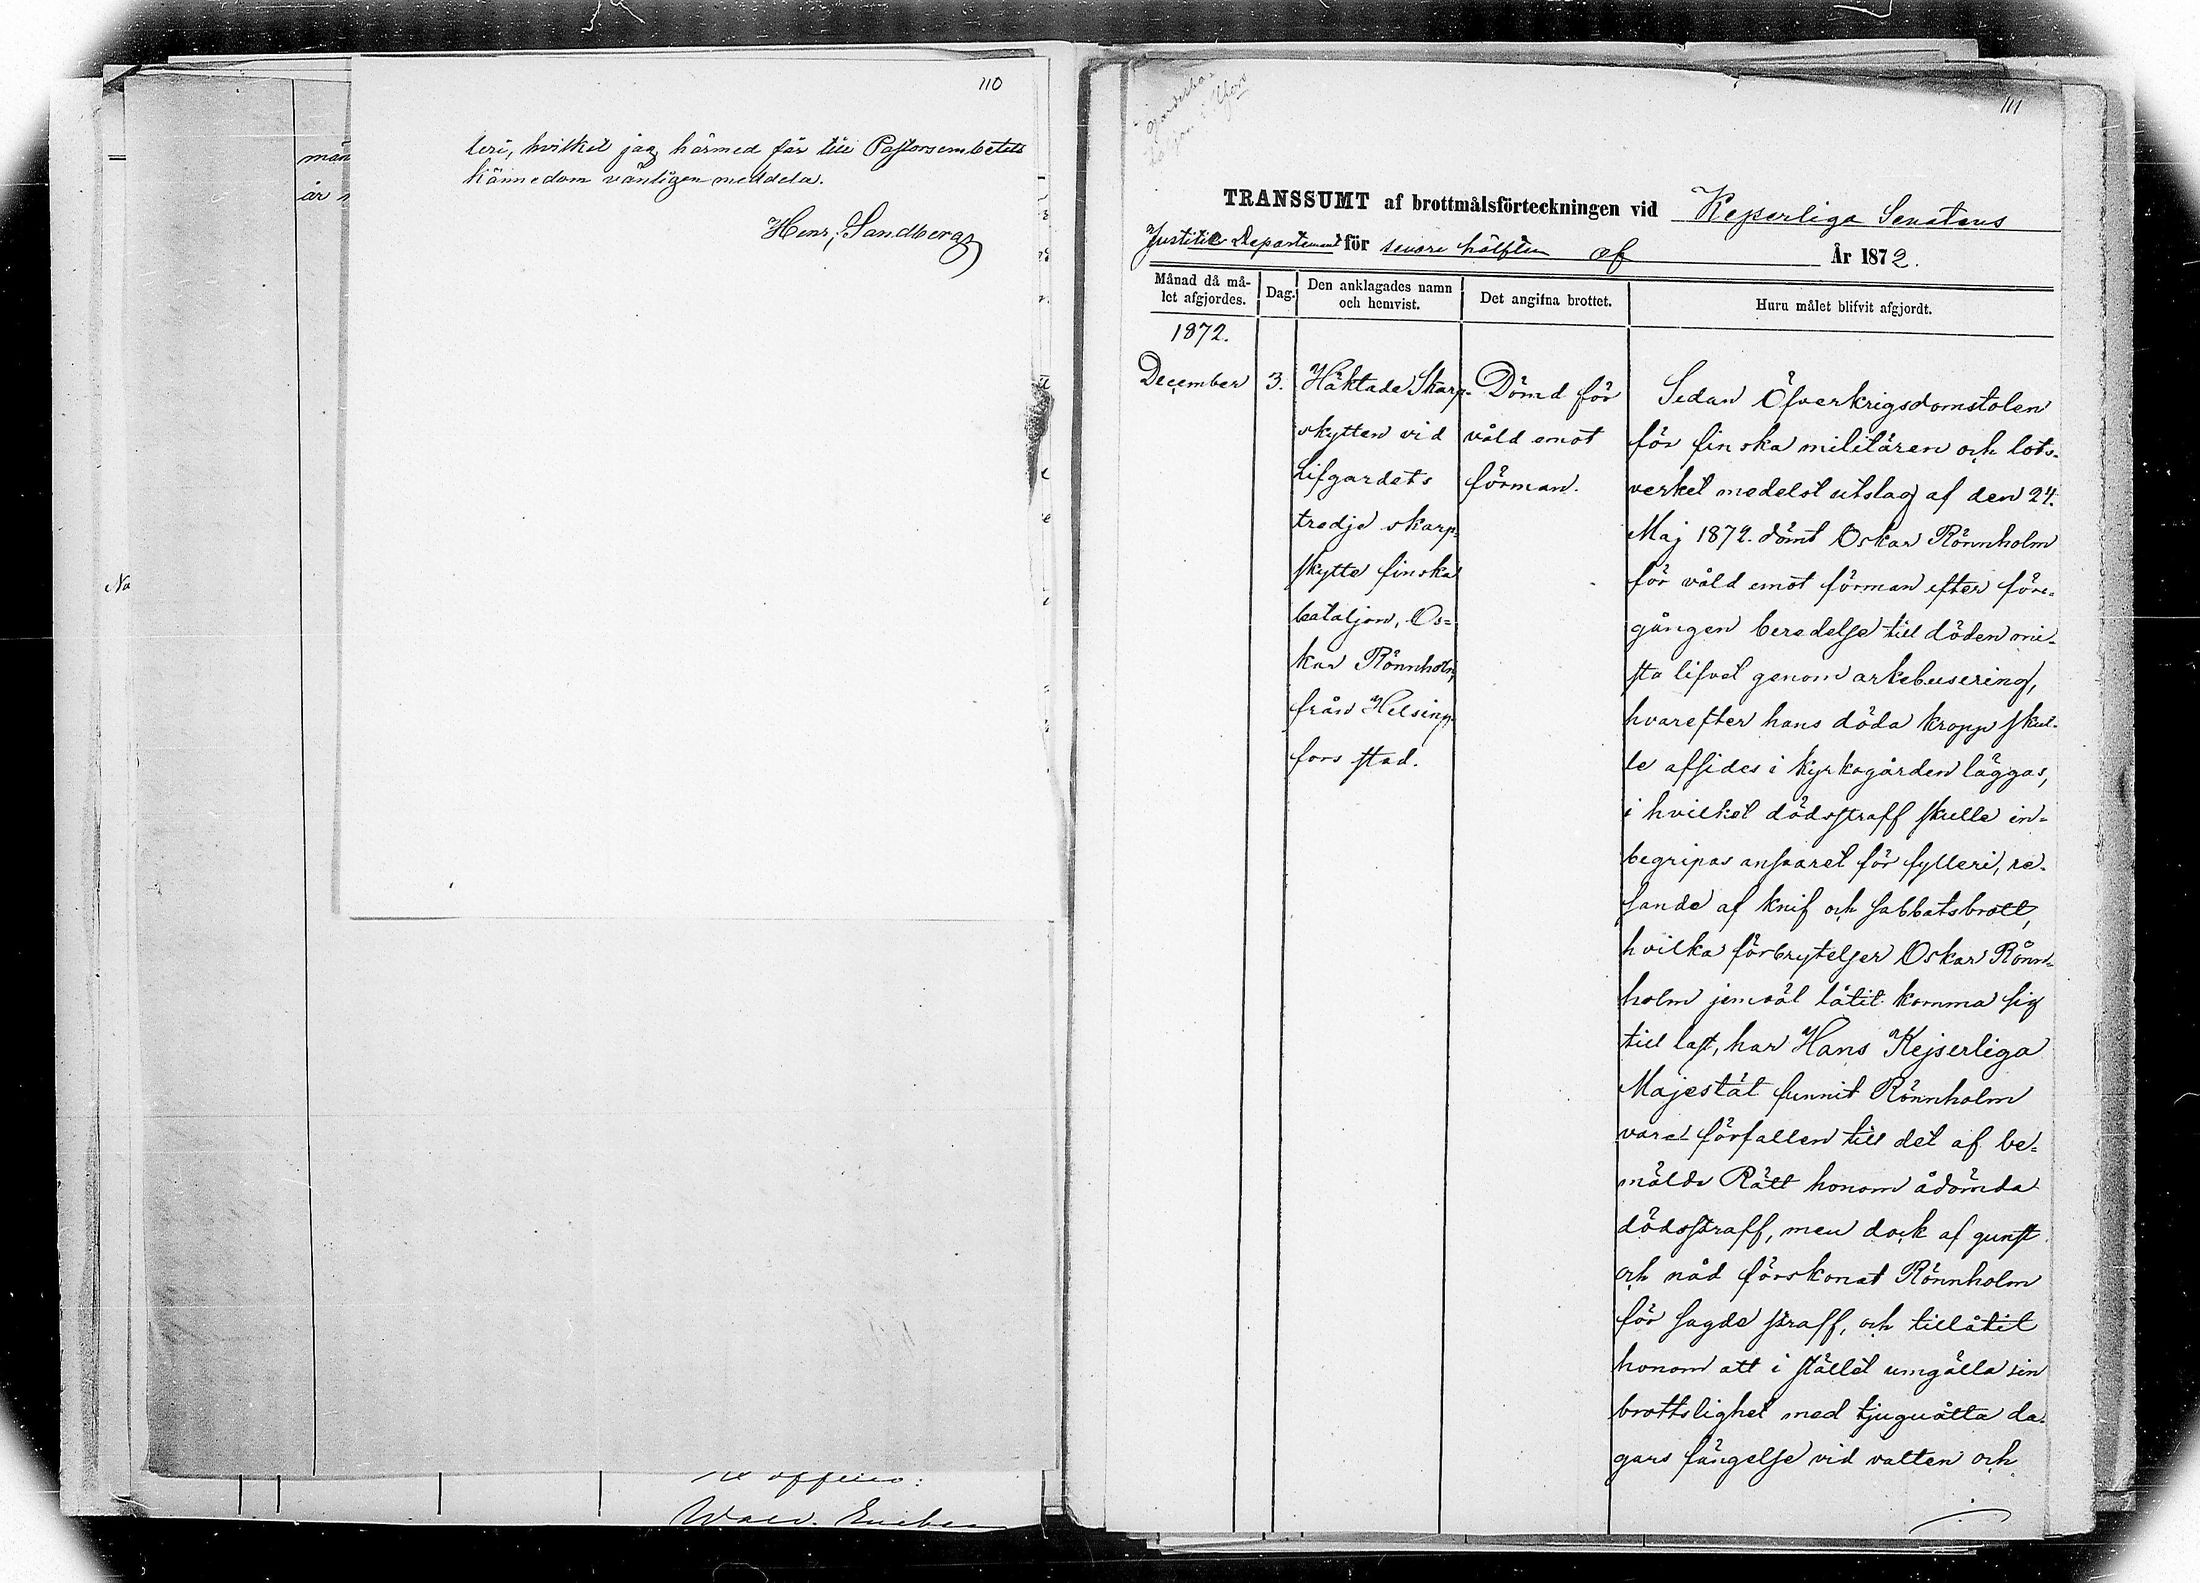 110
män
leri, hvilket jag härmed får till Pastorsembetets
kännedom vänligen meddela.
är
Henr. Sandberg
No
Wald.
111
TRANSSUMT af brottmålsförteckningen vid Kejserliga Senatens
Justitie Departement för senare hälften af År 1872.
Månad då må-
let afgjordes.
Dag.
Den anklagades namn
och hemvist.
Det angifna brottet.
Huru målet blifvit afgjordt.
1872.
December
3.
Häktade Skarp-
skytten vid
Lifgardets
tredje skarp-
skytte finska
bataljon, Os-
kar Rönnholm,
från Helsing-
fors stad.
Dömd för
våld emot
förman.
Sedan Öfverkrigsdomstolen
för finska militären och lots-
verket medelst utslag af den 24.
Maj 1872. dömt Oskar Rönnholm
för våld emot förman efter före-
gången beredelse till döden mi-
sta lifvet genom arkebusering,
hvarefter hans döda kropp skul-
le afsides i kyrkogården läggas,
i hvilket dödsstraff skulle in-
begripas ansvaret för fylleri, re-
sande af knif och sabbatsbrott,
hvilka förbrytelser Oskar Rönn-
holm jemväl låtit komma sig
till last, har Hans Kejserliga
Majestät funnit Rönnholm
vara förfallen till det af be-
mälde Rätt honom ådömda
dödsstraff, men dock af gunst
och nåd förskonat Rönnholm
för sagde straff, och tillåtit
honom att i stället umgälla sin
brottslighet med tjuguåtta da-
gars fängelse vid vatten och